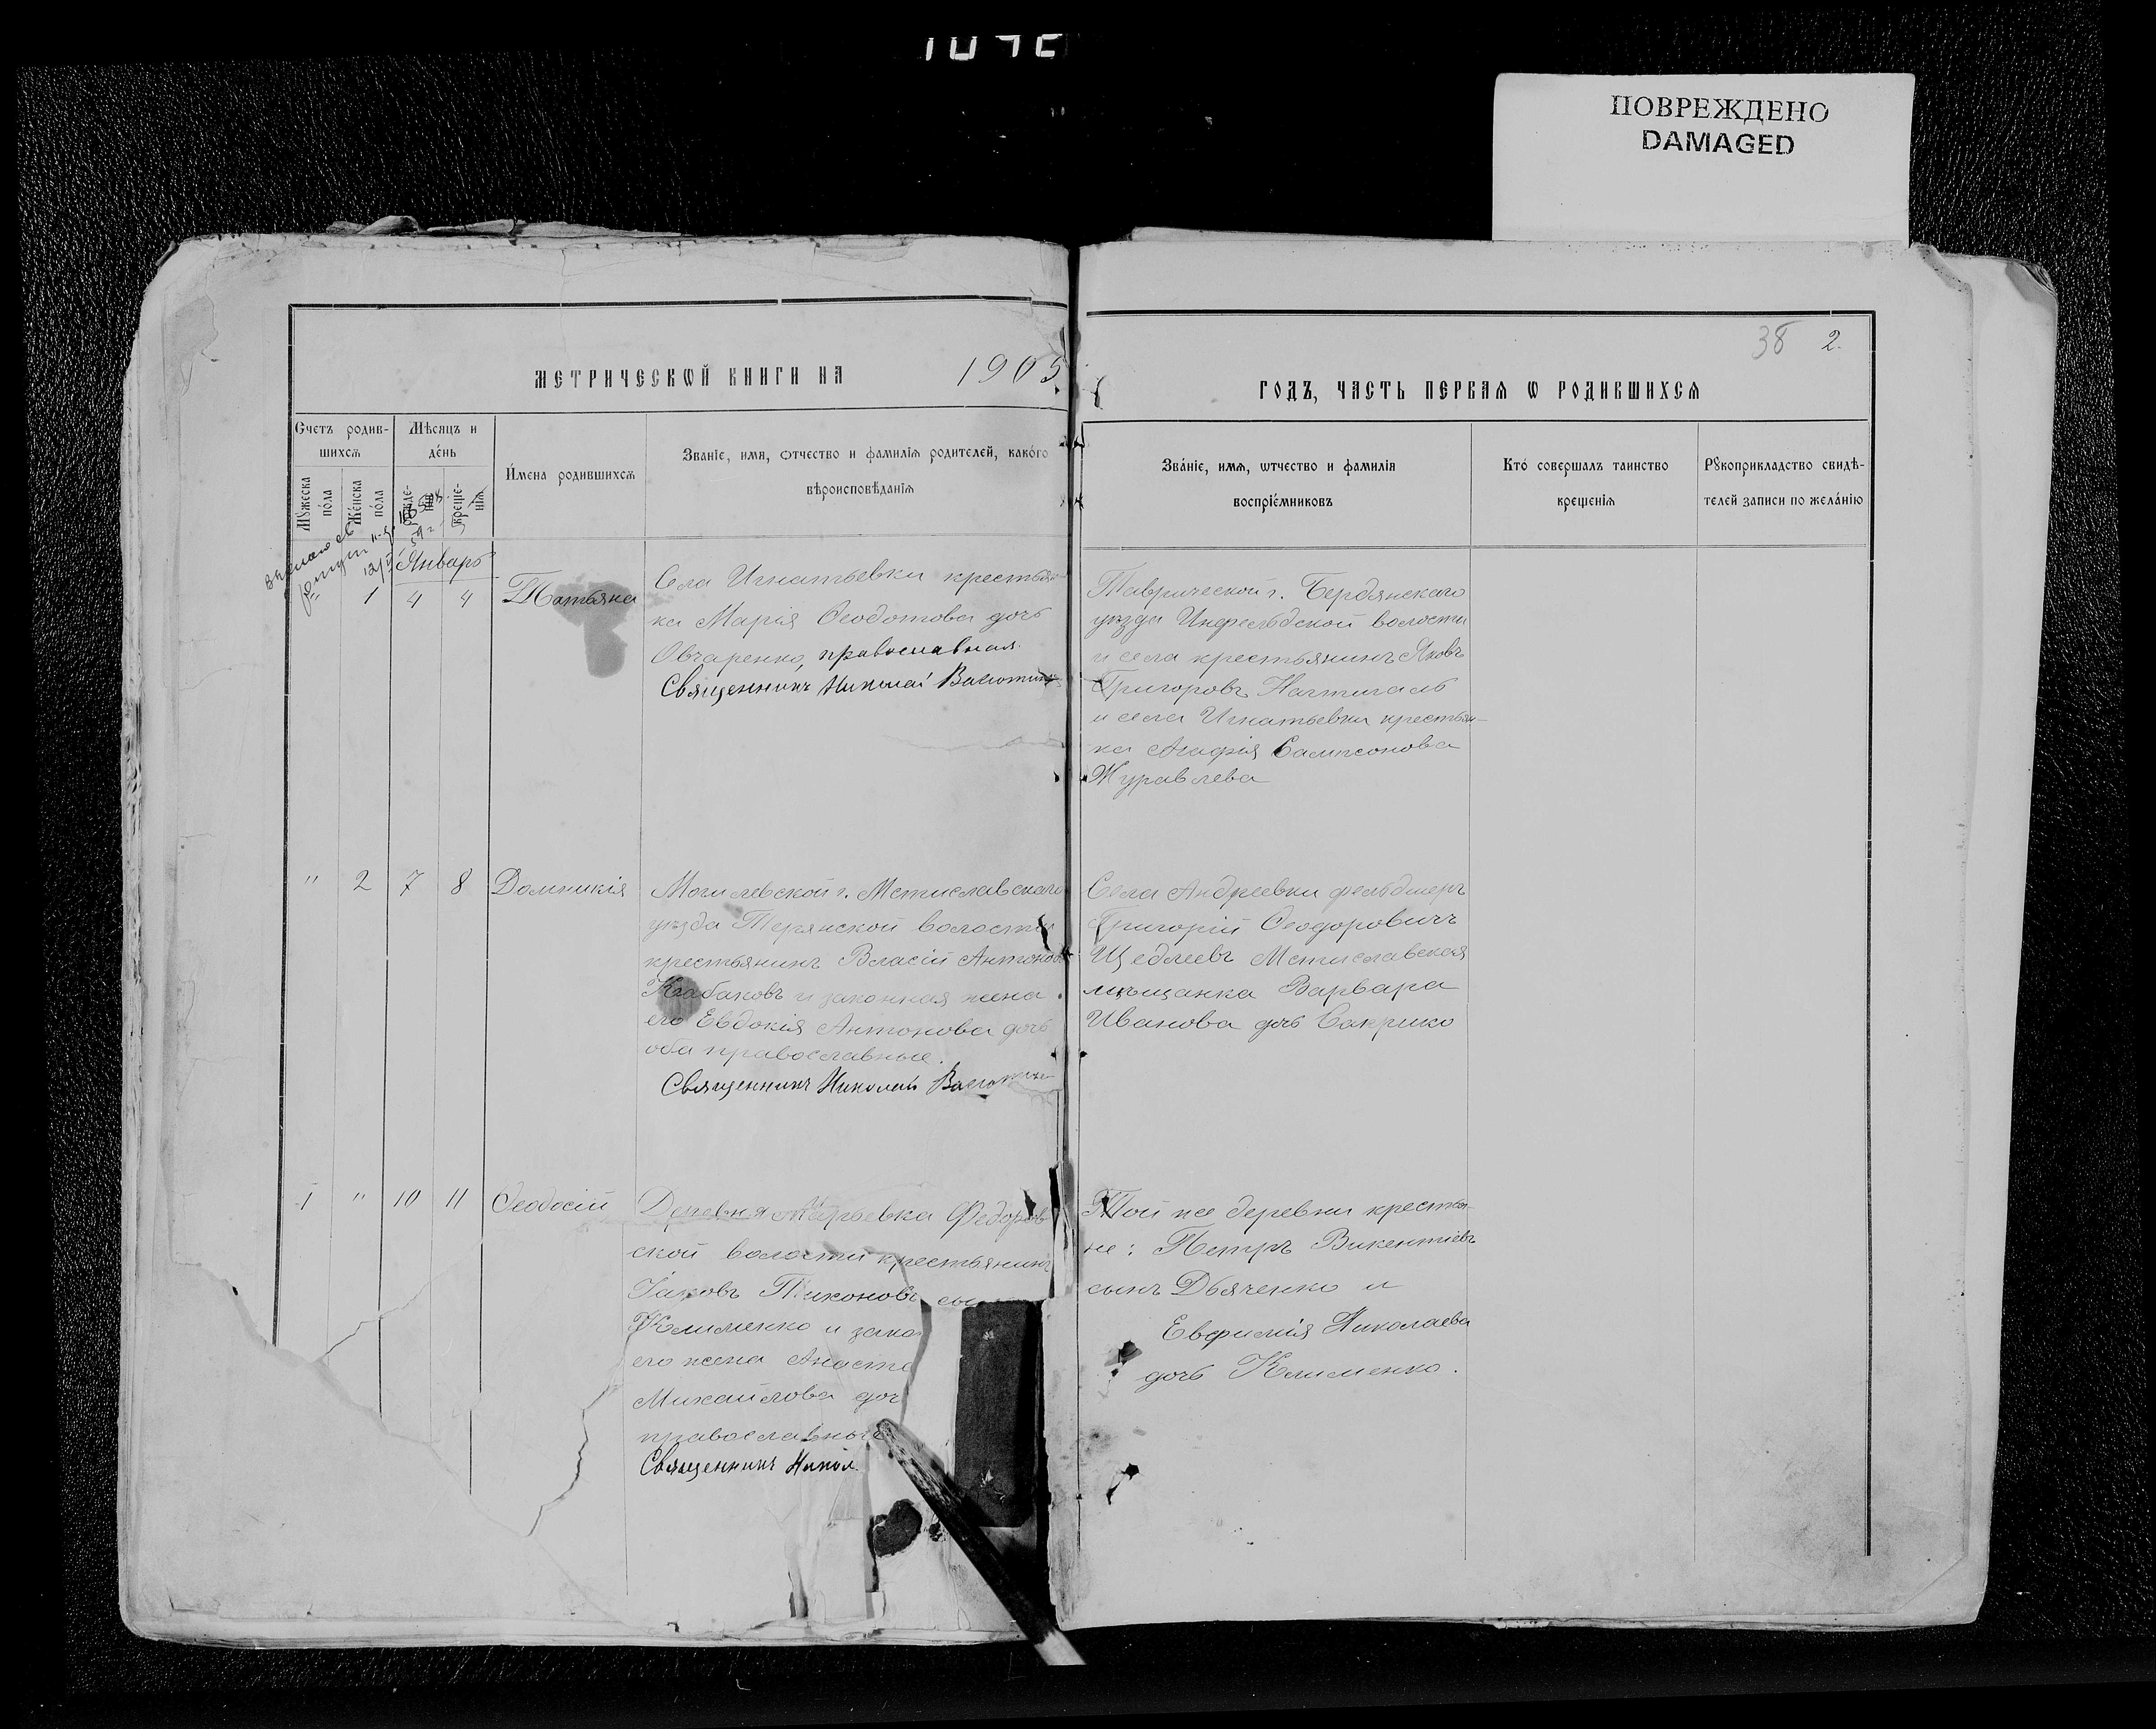 ПОВРЕЖДЕНО
DAMAGED
38 2.
МЕТРИЧЕСКѠЙ КНИГИ НА 1905
ГОДЪ, ЧАСТЬ ПЕРВАѦ Ѡ РОДИВШИХСѦ
Счетъ родив-
шихсѧ
Мꙋжеска
по́ла
Же́нска
по́ла
Мѣсѧцъ и
де́нь
креще-
нїѧ
И́мена родившихсѧ
Званїе, имѧ, ѻтчество и фамилїѧ родителей, како́го
вѣроисповѣданїѧ
Зва́нїе, имѧ, ѡтчество и фамилїѧ
воспрїе́мниковъ
Кто́ совершалъ таинство
крещенїѧ
Рꙋкоприкладство свидѣ-
телей записи по жела́нїю
Январь
1 4 4 Татьяна
Села Игнатьевки крестьян-
ка Марія Ѳеодотова дочь
Овчаренко, православная.
Священникъ Николай
Таврической г. Бердянскаго
уѣзда волости
и села крестьянинъ Яковъ
Григоровъ Нахтигаль
и села Игнатьевки крестьян-
ка Агафія Сампсонова
Журавлева
" 2 7 8 Домникія
Могилевской г. Мстиславскаго
уѣзда волости
крестьянинъ Власій Антоновъ
и законная жена
его Евдокія Антонова дочь
оба православные.
Священникъ Николай
Села Андреевки фельдшеръ
Григорій Ѳеодоровичъ
Мстиславская
мѣщанка Варвара
Иванова дочь
1 " 10 11 Ѳеодосій
Деревня Марьевка Федоров
ской волости крестьянинъ
Іаковъ Тихоновъ сы
Клименко и зако
его жена Анаста
Михайлова доч
православные
Священникъ Никол
Той же деревни крестья-
не: Петръ Викентіевъ
сынъ Дьяченко и
Евфимія Николаева
дочь Клименко.